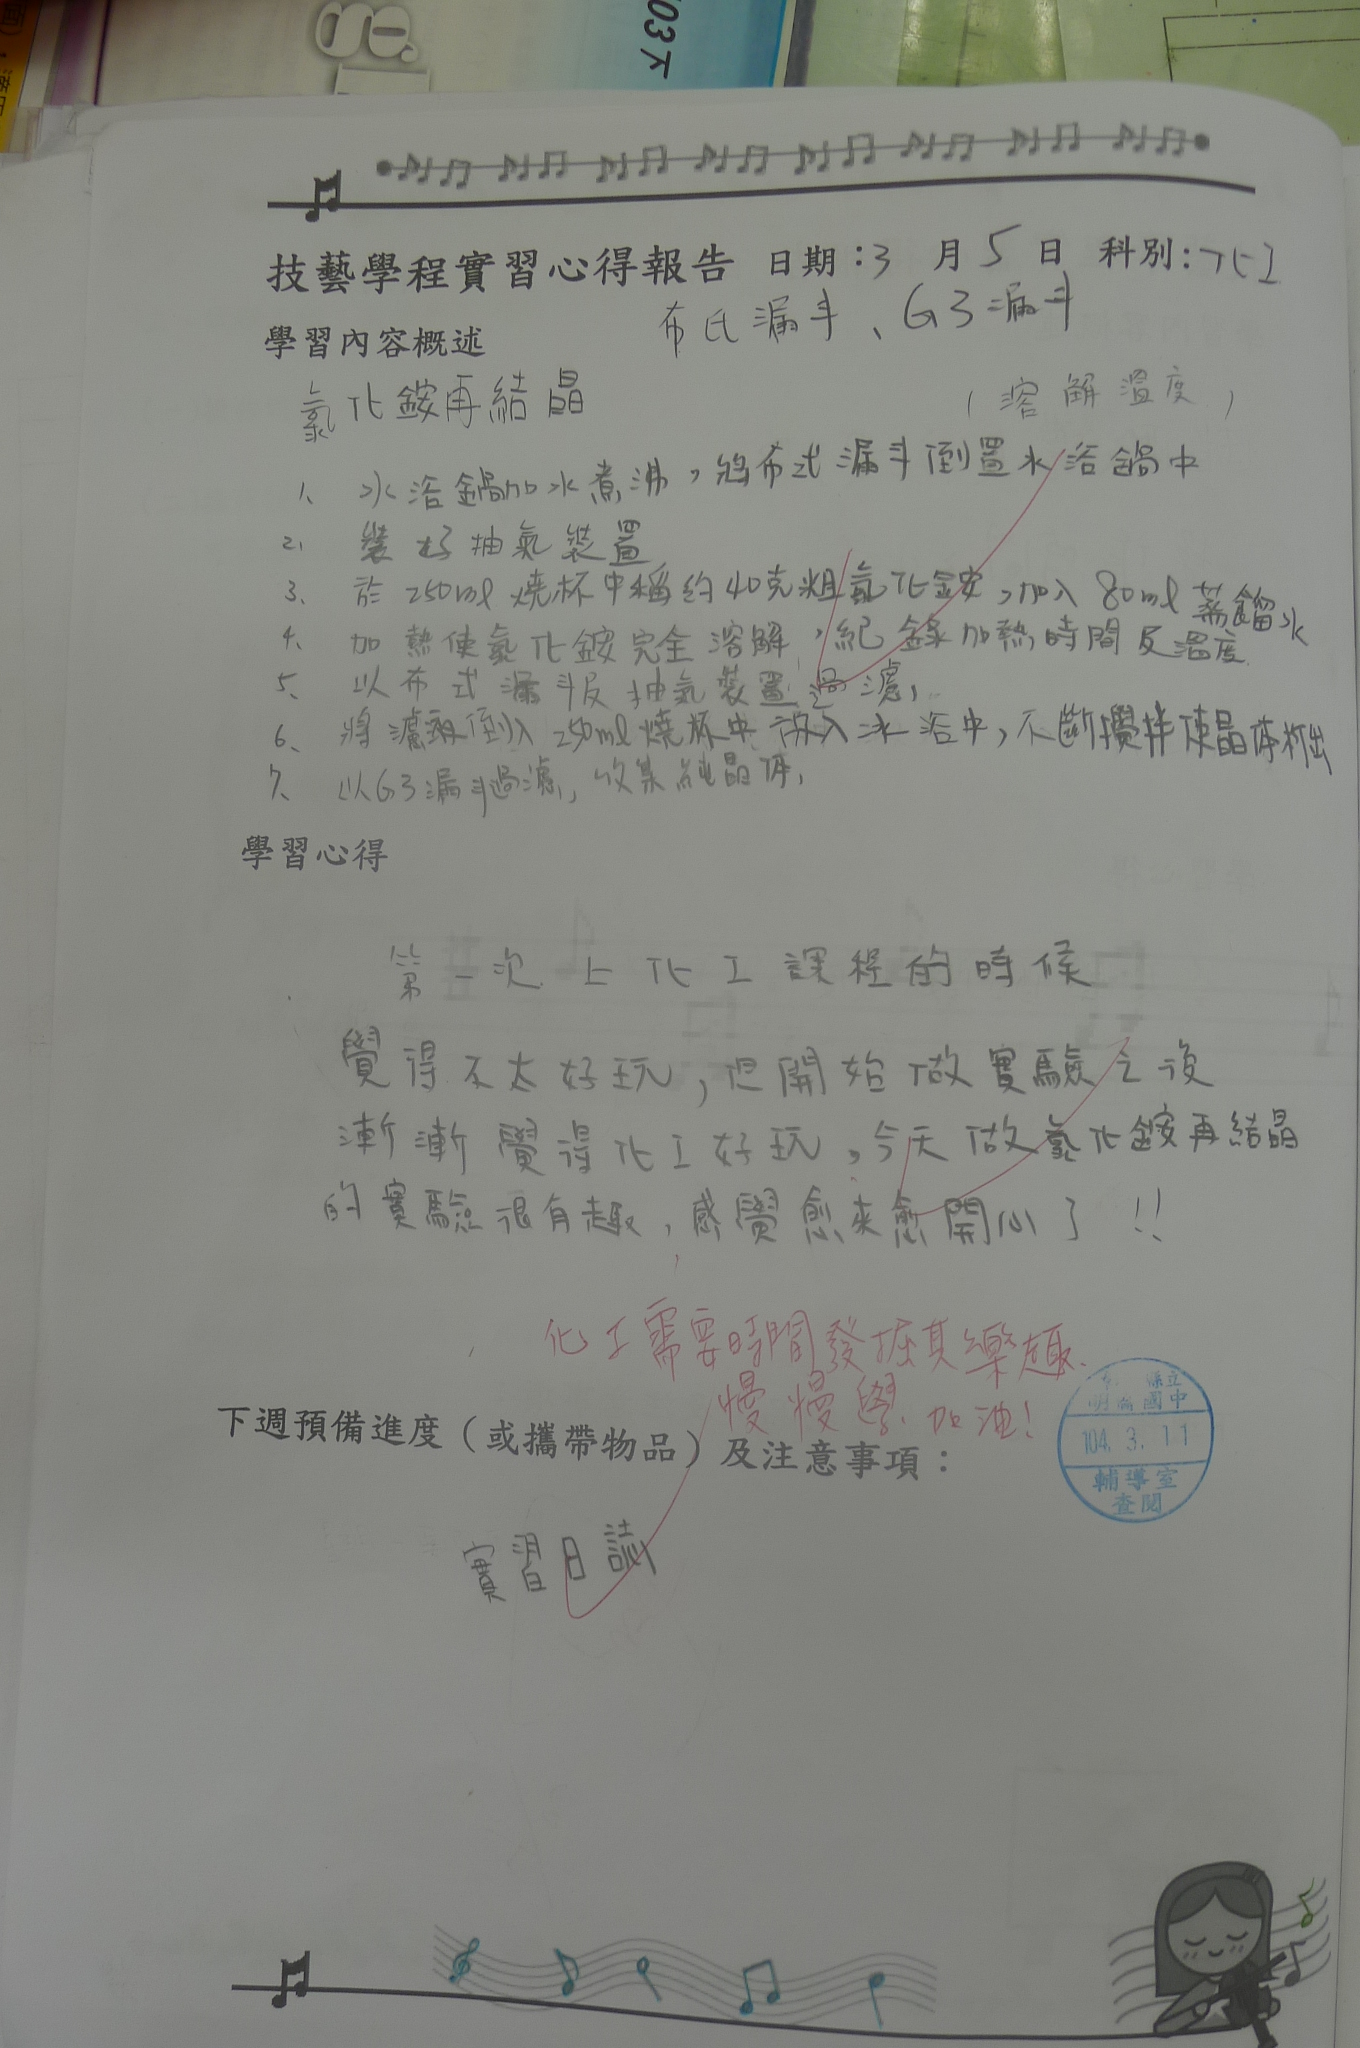 03下
技藝學程實習心得報告 日期:3月5日 科別:化工
布氏漏斗、G3漏斗
學習內容概述
氯化銨再結晶
(溶解溫度)
1、水浴鍋加水煮沸,將布式漏斗倒置水浴鍋中
2、裝好抽氣裝置
3、於250ml燒杯中稱約40克粗氯化銨,加入80ml蒸餾水
4、加熱使氯化銨完全溶解,紀錄加熱時間及溫度
5、以布式漏斗及抽氣裝置過濾,
6、將濾液倒入250ml燒杯中放入冰浴中,不斷攪拌使晶体析出
7、以G3漏斗過濾,收集純晶体,
學習心得
第一次上化工課程的時候
覺得不太好玩,但開始做實驗之後
漸漸覺得化工好玩,今天做氯化銨再結晶
的實驗很有趣,感覺愈來愈開心了!!
化工需要時間發掘其樂趣.
慢慢學.加油!
下週預備進度(或攜帶物品)及注意事項:
縣立
國中
104.3.11
輔導室
查閱
實習日誌